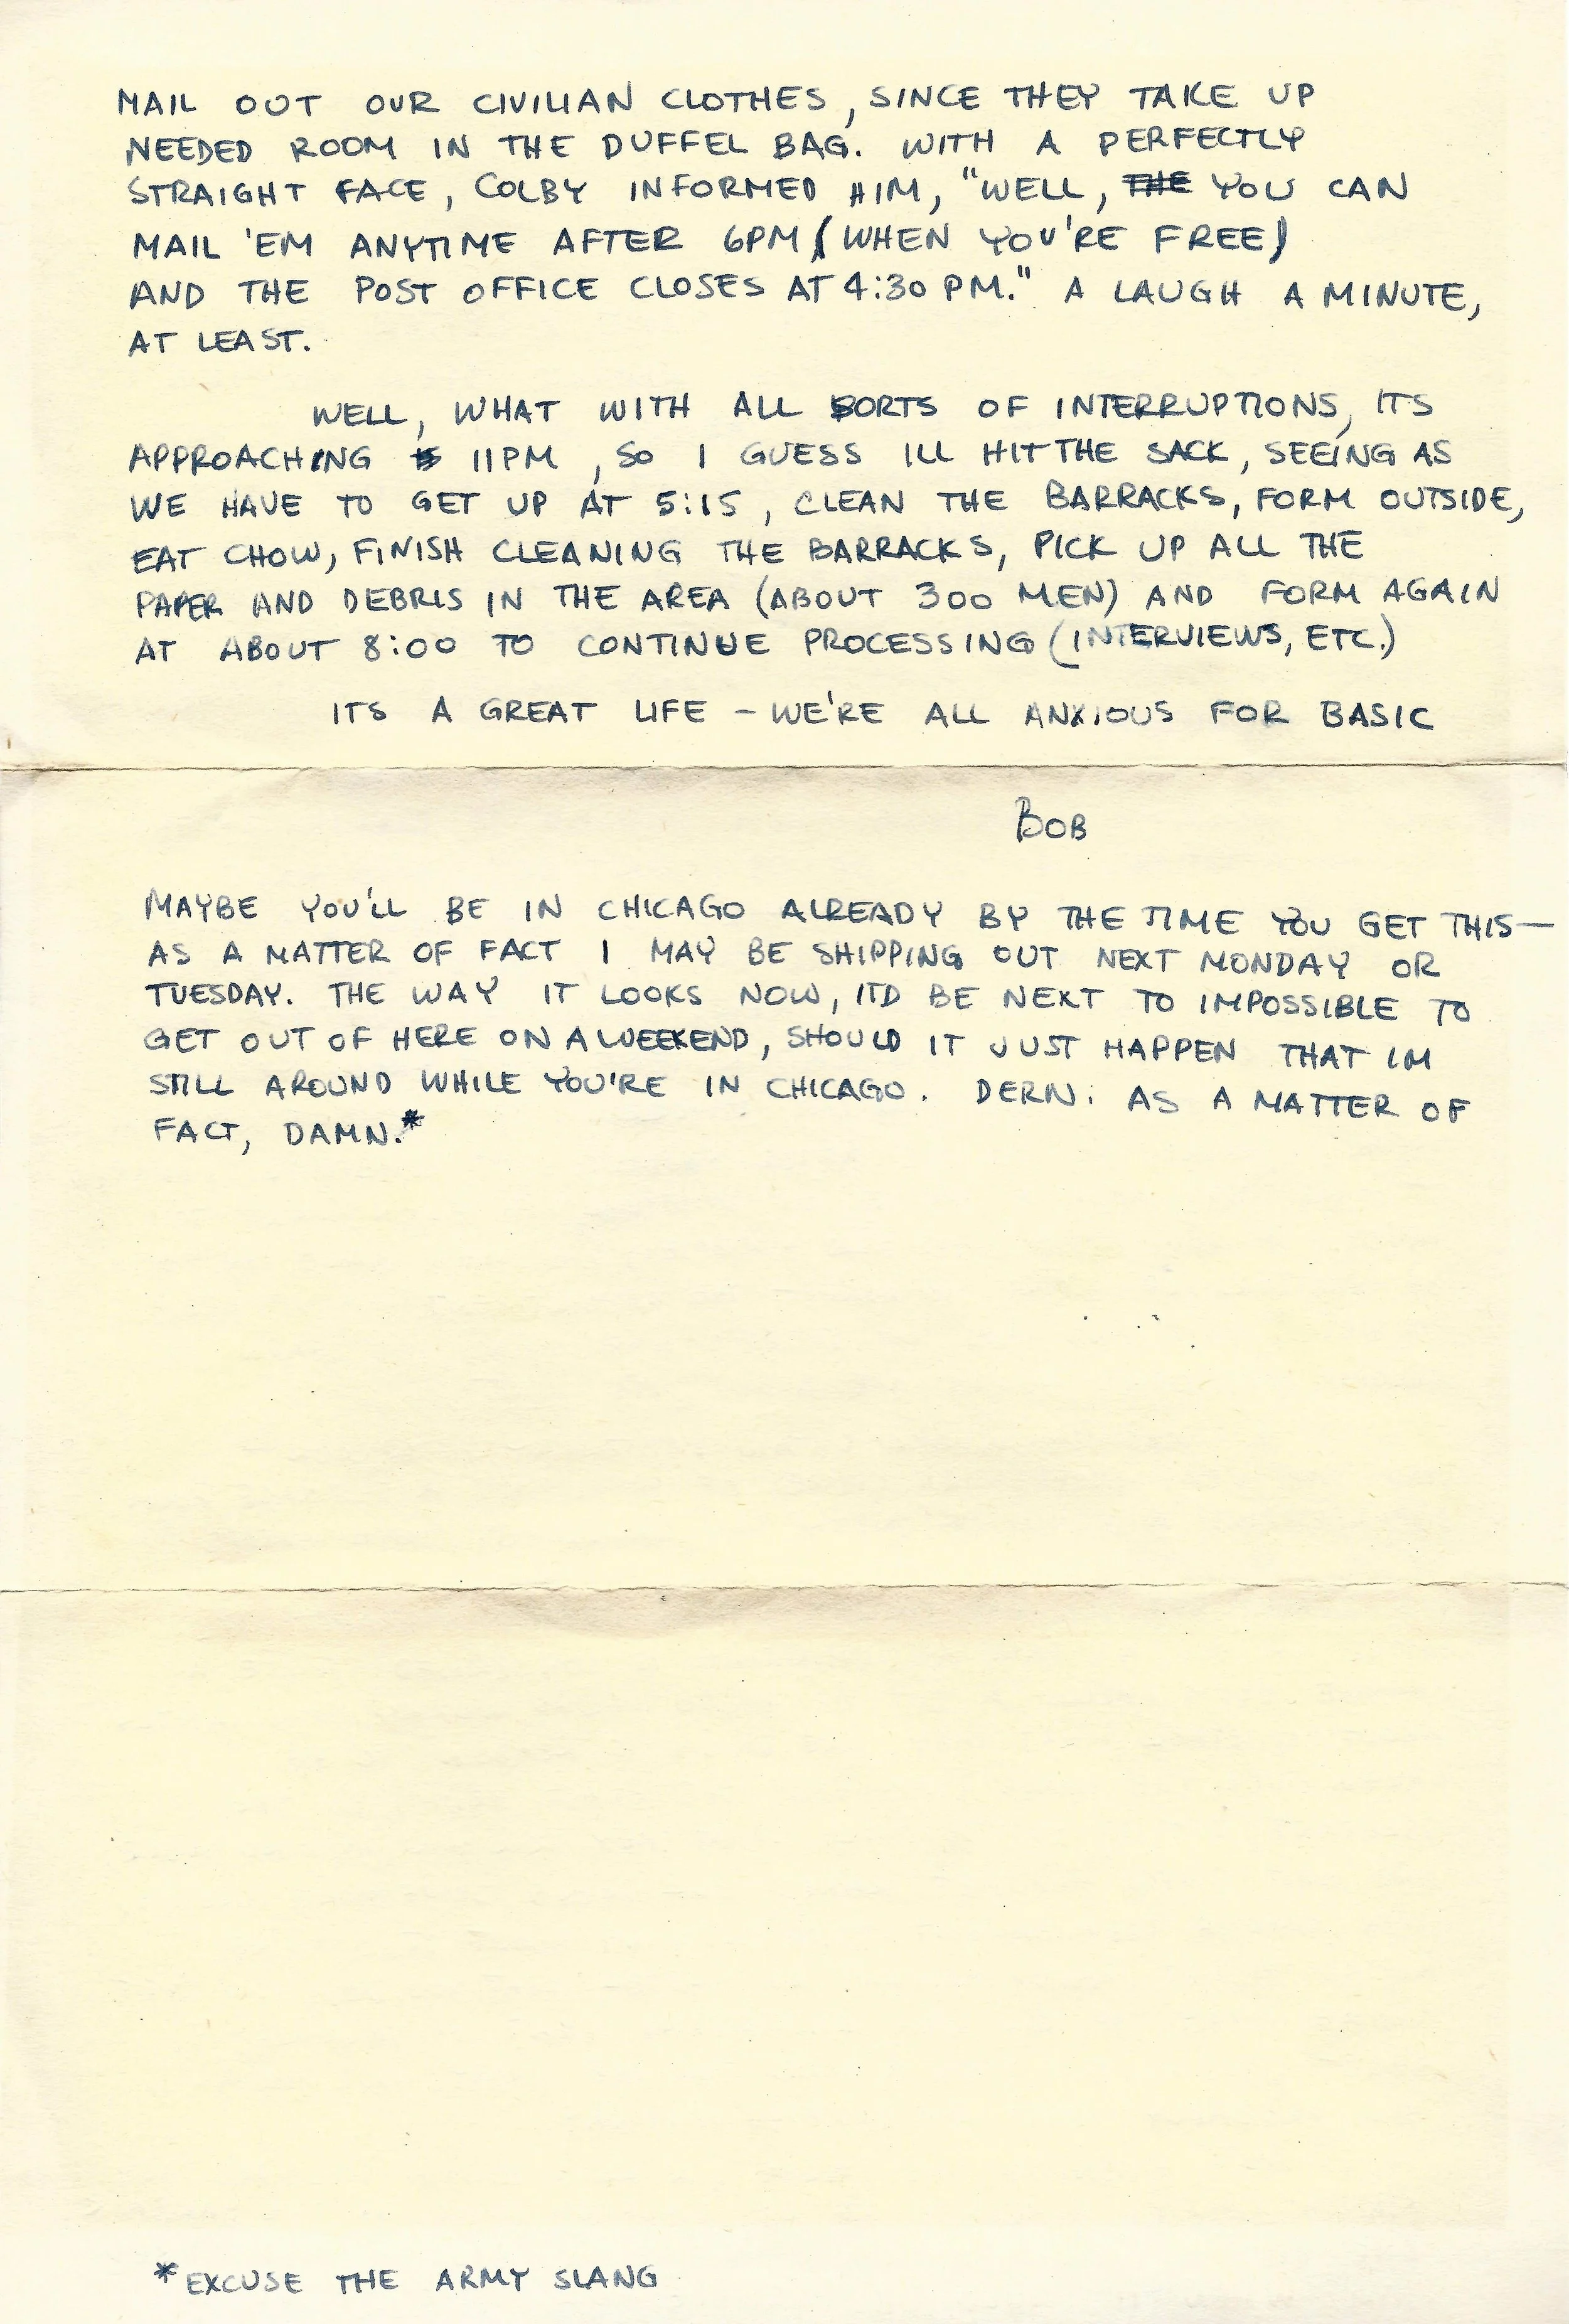 MAIL OUT OUR CIVILIAN CLOTHES, SINCE THEY TAKE UP
NEEDED ROOM IN THE DUFFEL BAG. WITH A PERFECTLY
STRAIGHT FACE, COLBY INFORMED HIM, "WELL, THE YOU CAN
MAIL 'EM ANYTIME AFTER 6PM (WHEN YOU'RE FREE)
AND THE POST OFFICE CLOSES AT 4:30 PM." A LAUGH A MINUTE,
AT LEAST.
WELL, WHAT WITH ALL SORTS OF INTERRUPTIONS, ITS
APPROACHING 11PM, SO I GUESS ILL HIT THE SACK, SEEING AS
WE HAVE TO GET UP AT 5:15, CLEAN THE BARRACKS, FORM OUTSIDE,
EAT CHOW, FINISH CLEANING THE BARRACKS, PICK UP ALL THE
PAPER AND DEBRIS IN THE AREA (ABOUT 300 MEN) AND FORM AGAIN
AT ABOUT 8:00 TO CONTINUE PROCESSING (INTERVIEWS, ETC.)
ITS A GREAT LIFE - WE'RE ALL ANXIOUS FOR BASIC
BOB
MAYBE YOU'LL BE IN CHICAGO ALREADY BY THE TIME YOU GET THIS—
AS A MATTER OF FACT I MAY BE SHIPPING OUT NEXT MONDAY OR
TUESDAY. THE WAY IT LOOKS NOW, ITD BE NEXT TO IMPOSSIBLE TO
GET OUT OF HERE ON A WEEKEND, SHOULD IT JUST HAPPEN THAT IM
STILL AROUND WHILE YOU'RE IN CHICAGO. DERN. AS A MATTER OF
FACT, DAMN.*
*EXCUSE THE ARMY SLANG